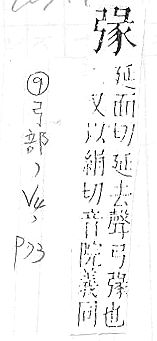 彖
延面切延去聲弓彖也
又以絹切音院義同
⑨弓部，V4，
P73